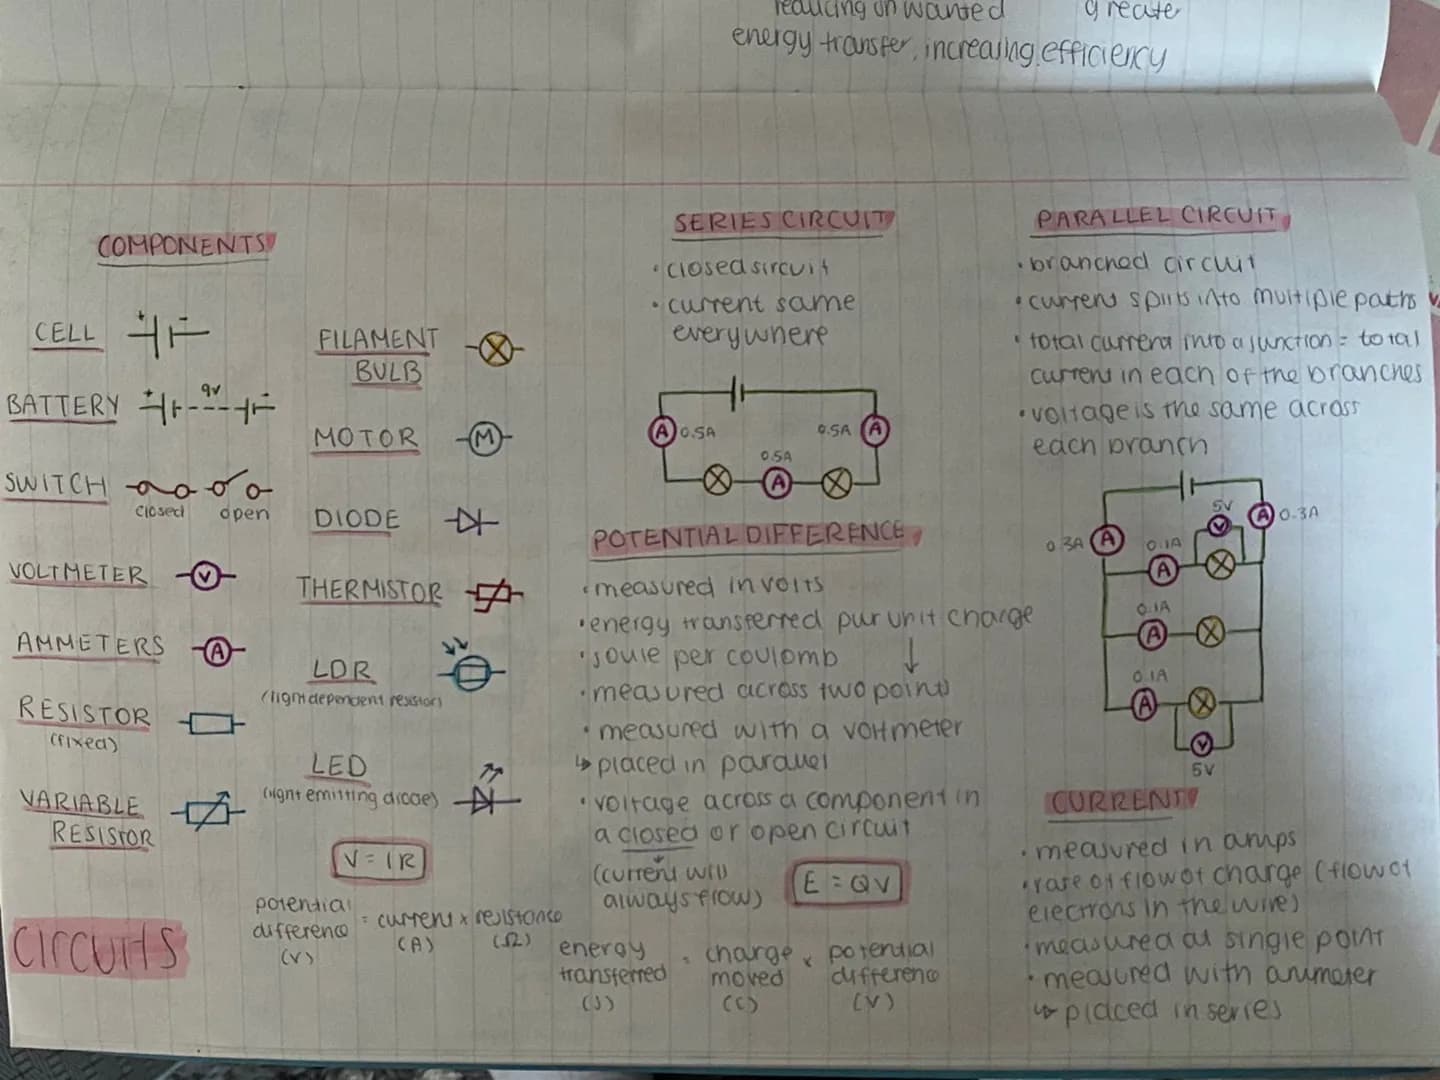 reducing unwanted greate
energy transfer, increasing efficiency
COMPONENTS
CELL + -
BATTERY + 9v -
SWITCH
closed open
VOLTMETER V
AMMETERS A
RESISTOR
(fixed)
VARIABLE
RESISTOR
FILAMENT
BULB
MOTOR M
DIODE
THERMISTOR
LDR
(light dependent resistor)
LED
(light emitting diode)
V = IR
potential
difference = current x resistance
(V) (A) (Ω)
CIRCUITS
SERIES CIRCUIT
• closed sircuit
• current same
everywhere
A 0.5A 0.5A A
0.5A
A
POTENTIAL DIFFERENCE
• measured in volts
• energy transferred pur unit charge
• joule per coulomb ↓
• measured across two points
• measured with a voltmeter
↳ placed in parallel
• voltage across a component in
a closed or open circuit
(current will
always flow)
E = QV
energy
transferred = charge
moved x potential
difference
(J) (C) (V)
PARALLEL CIRCUIT
• branched circuit
• current splits into multiple paths
• total current into a junction = total
current in each of the branches
• voltage is the same across
each branch
5V
V
A 0.3A
0.3A A 0.1A
A
0.1A
A
0.1A
A
V
5V
CURRENT
• measured in amps
• rate of flow of charge (flow of
electrons in the wire)
• measured at single point
• measured with ammeter
↳ placed in series